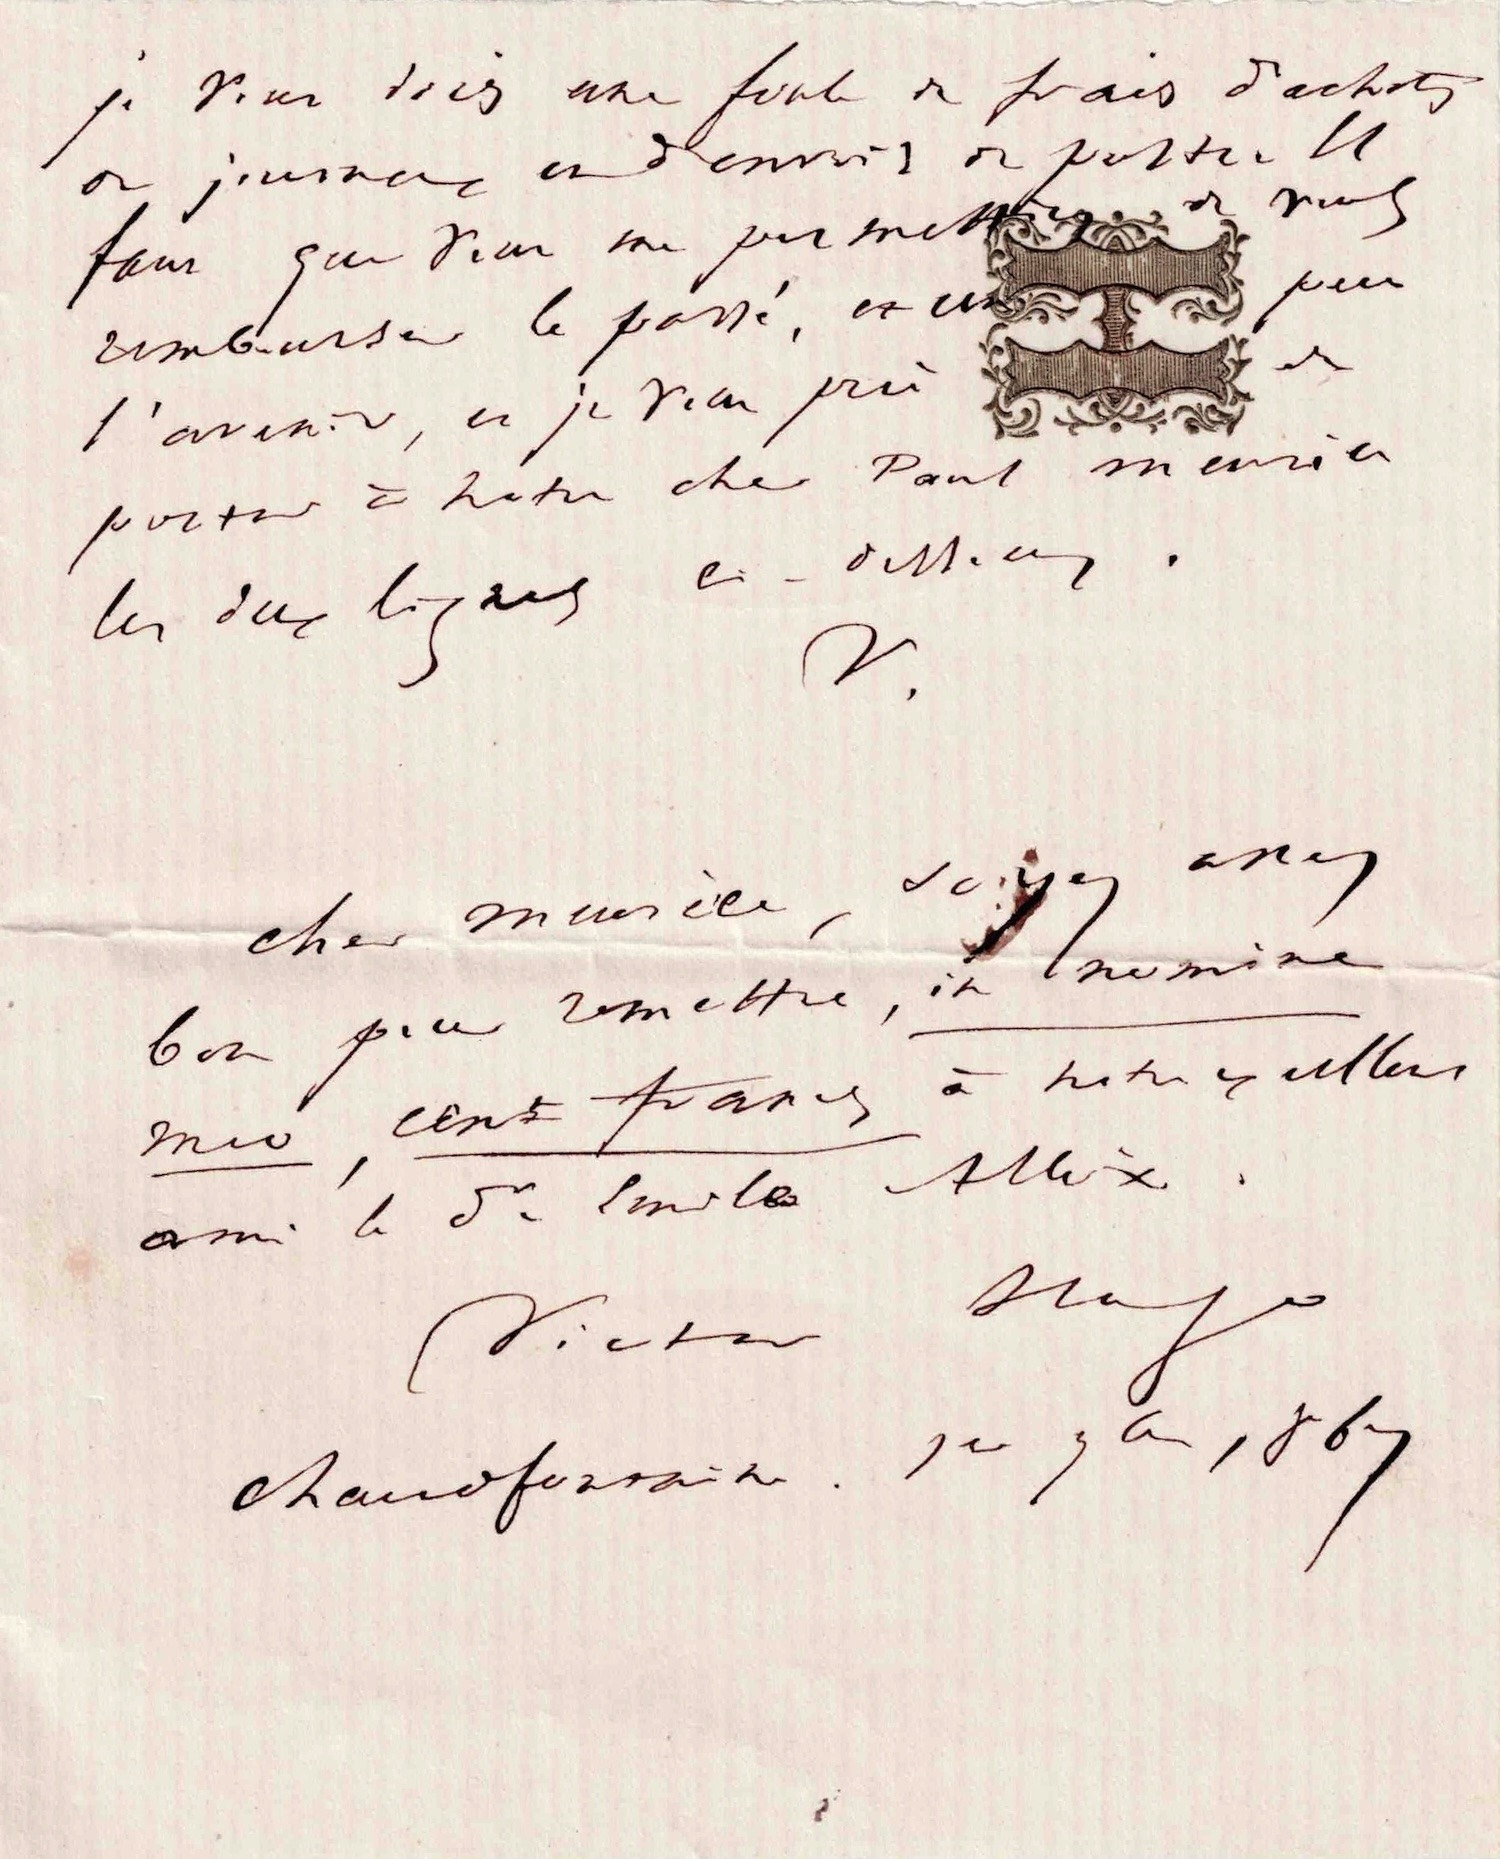 je vous dois une foule de frais d'achats
de journaux et d'envois de poste. Il
faut que vous me permettiez de vous
rembourser le passé, et un peu
l'avenir, et je vous prie de
porter à notre cher Paul meurice
les deux lignes ci-dessous.
V.
cher meurice, soyez assez
bon pour remettre, in nomine
meo, cent francs à notre excellent
ami le Dr Emile Allix.
Victor Hugo
chaudfontaine. 1er 7bre, 1867